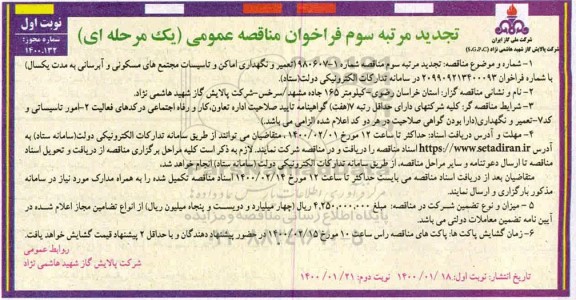 نوبت اول
شماره مجوز:
۱۴۰۰.۱۳۲
تجدید مرتبه سوم فراخوان مناقصه عمومی (یک مرحله ای)
شرکت ملی گاز ایران
شرکت پالایش گاز شهید هاشمی نژاد
(S.G.P.C)
۱- شماره و موضوع مناقصه: تجدید مرتبه سوم مناقصه شماره ۱-۹۸۰۶۰۷ (تعمیر و نگهداری اماکن و تاسیسات مجتمع های مسکونی و آبرسانی به مدت یکسال)
با شماره فراخوان ۲۰۹۹۰۹۲۱۳۴۰۰۰۹۳ در سامانه تدارکات الکترونیکی دولت(ستاد).
۲- نام و نشانی مناقصه گزار: استان خراسان رضوی-کیلومتر ۱۶۵ جاده مشهد /سرخس-شرکت پالایش گاز شهید هاشمی نژاد.
۳- شرایط مناقصه گر: کلیه شرکتهای دارای حداقل رتبه ۷(هفت) گواهینامه تایید صلاحیت اداره تعاون،کار و رفاه اجتماعی درکدهای فعالیت ۲-امور تاسیساتی و
کد۷-تعمیر و نگهداری(دارا بودن گواهی صلاحیت در هر دو کد اعلام شده الزامی می باشد).
۴- مهلت و آدرس دریافت اسناد: حداکثر تا ساعت ۱۲ مورخ ۱۴۰۰/۰۲/۰۱ ،متقاضیان می توانند از طریق سامانه تدارکات الکترونیکی دولت(سامانه ستاد) به
آدرس https://www.setadiran.ir اسناد مناقصه را دریافت و در مناقصه شرکت نمایند. لازم به ذکر است کلیه مراحل برگزاری مناقصه از دریافت و تحویل اسناد
مناقصه تا ارسال دعوتنامه و سایر مراحل مناقصه، از طریق سامانه تدارکات الکترونیکی دولت (سامانه ستاد) انجام خواهد شد.
متقاضیان بعد از دریافت اسناد مناقصه می بایست حداکثر تا ساعت ۱۲ مورخ ۱۴۰۰/۰۲/۱۴ اسناد مناقصه تکمیل شده را به همراه مدارک مورد نیاز در سامانه
مذکور بارگزاری و ارسال نمایند.
۵- میزان و نوع تضمین شرکت در مناقصه: مبلغ ۴,۲۵۰,۰۰۰,۰۰۰ ریال (چهار میلیارد و دویست و پنجاه میلیون ریال) از انواع تضامین مجاز اعلام شـده در
آیین نامه تضمین معاملات دولتی می باشد.
۶- زمان گشایش پاکت ها: پاکت های مناقصه راس ساعت ۱۰ مورخ ۱۴۰۰/۰۲/۱۵ در حضور پیشنهاد دهندگان و با حداقل ۲ پیشنهاد قیمت گشایش خواهد یافت.
روابط عمومی
شرکت پالایش گاز شهید هاشمی نژاد
تاریخ انتشار: نوبت اول: ۱۸ /۰۱ /۱۴۰۰ نوبت دوم: ۲۱ /۰۱ /۱۴۰۰